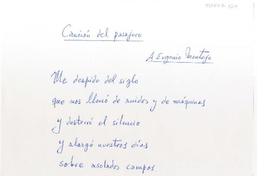 Canción del pasajero
A Eugenio Montejo
Me despido del siglo
que nos llenó de ruidos y de máquinas
y desterró el silencio
y alargó nuestros días
sobre asolados campos